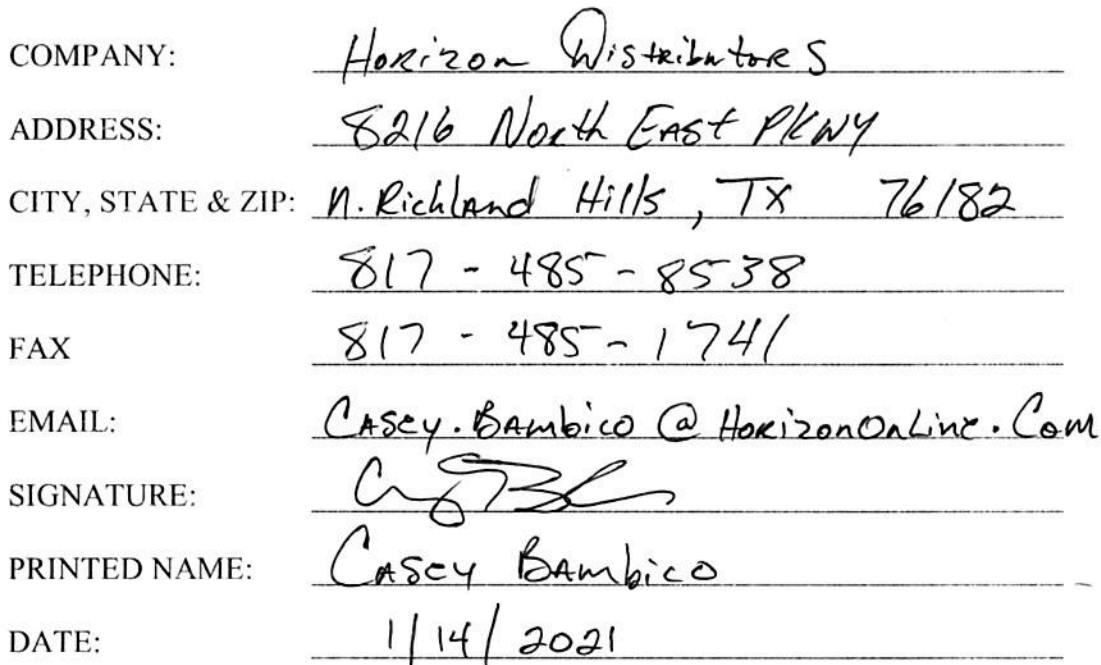 COMPANY: Horizon Distributors
ADDRESS: 8216 North East PKWY
CITY, STATE & ZIP: N. Richland Hills, TX 76182
TELEPHONE: 817 - 485 - 8538
FAX 817 - 485 - 1741
EMAIL: Casey.Bambico@HorizonOnline.Com
SIGNATURE:
PRINTED NAME: Casey Bambico
DATE: 1/14/2021